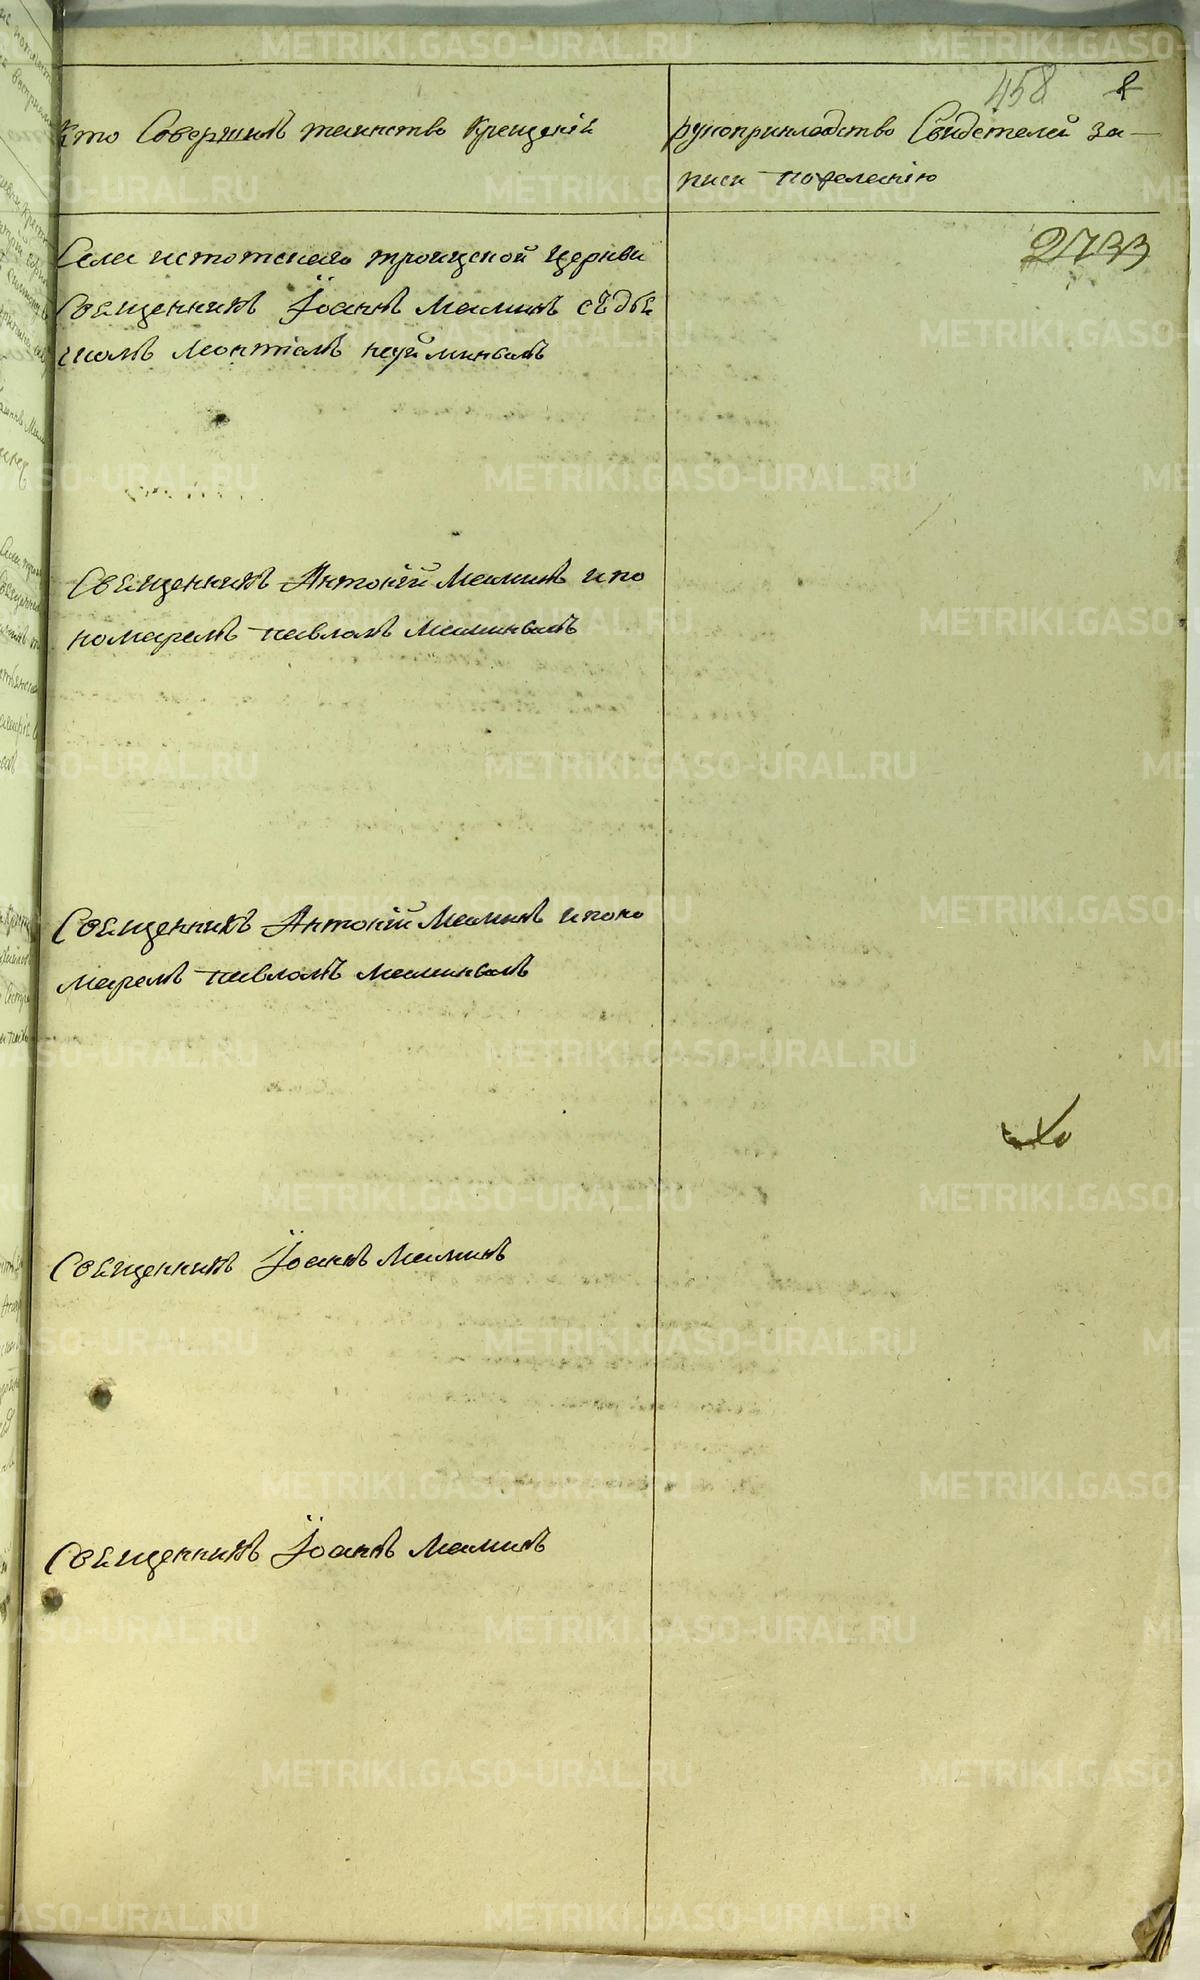 458
Кто Совершилъ таинство Крещенія
рукоприкладство Свидетелей за-
писи по желанію
2733
Села истотскаго троицкой церкви
Священникъ Іоаннъ Маминъ съдья
чкомъ Леонтіемъ неуйминымъ
Священникъ Антоній Маминъ ипо
номаремъ павломъ Маминымъ
Священникъ Антоній Маминъ ипоно
маремъ павломъ маминымъ
Священникъ Іоаннъ Маминъ
Священникъ Іоаннъ Маминъ
METRIKI.GASO-URAL.RU